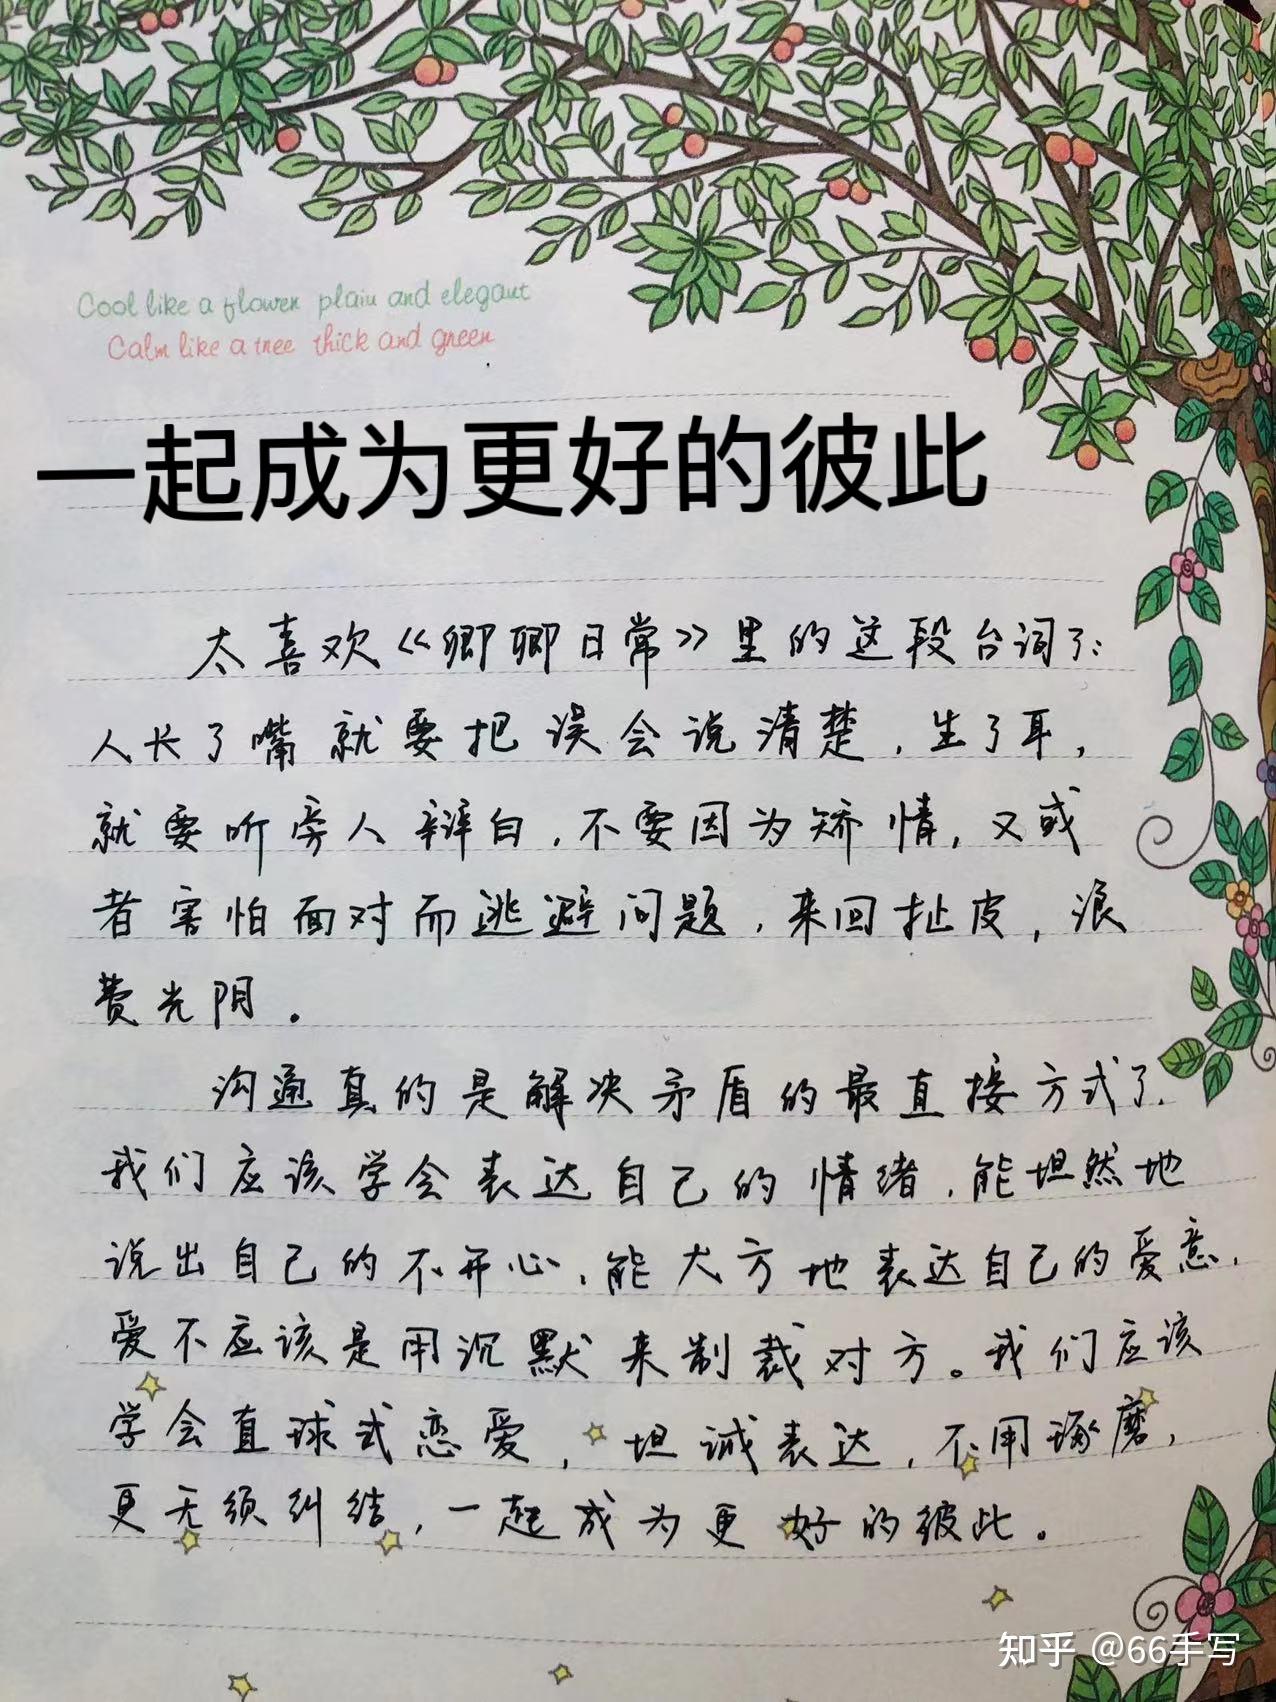 Cool like a flower plain and elegant
Calm like a tree thick and green
一起成为更好的彼此
太喜欢《卿卿日常》里的这段台词了：
人长了嘴就要把误会说清楚，生了耳，
就要听旁人辩白，不要因为矫情，又或
者害怕面对而逃避问题，来回扯皮，浪
费光阴。
沟通真的是解决矛盾的最直接方式了，
我们应该学会表达自己的情绪，能坦然地
说出自己的不开心，能大方地表达自己的爱意，
爱不应该是用沉默来制裁对方。我们应该
学会直球式恋爱，坦诚表达，不用琢磨，
更无须纠结，一起成为更好的彼此。
知乎 @66手写